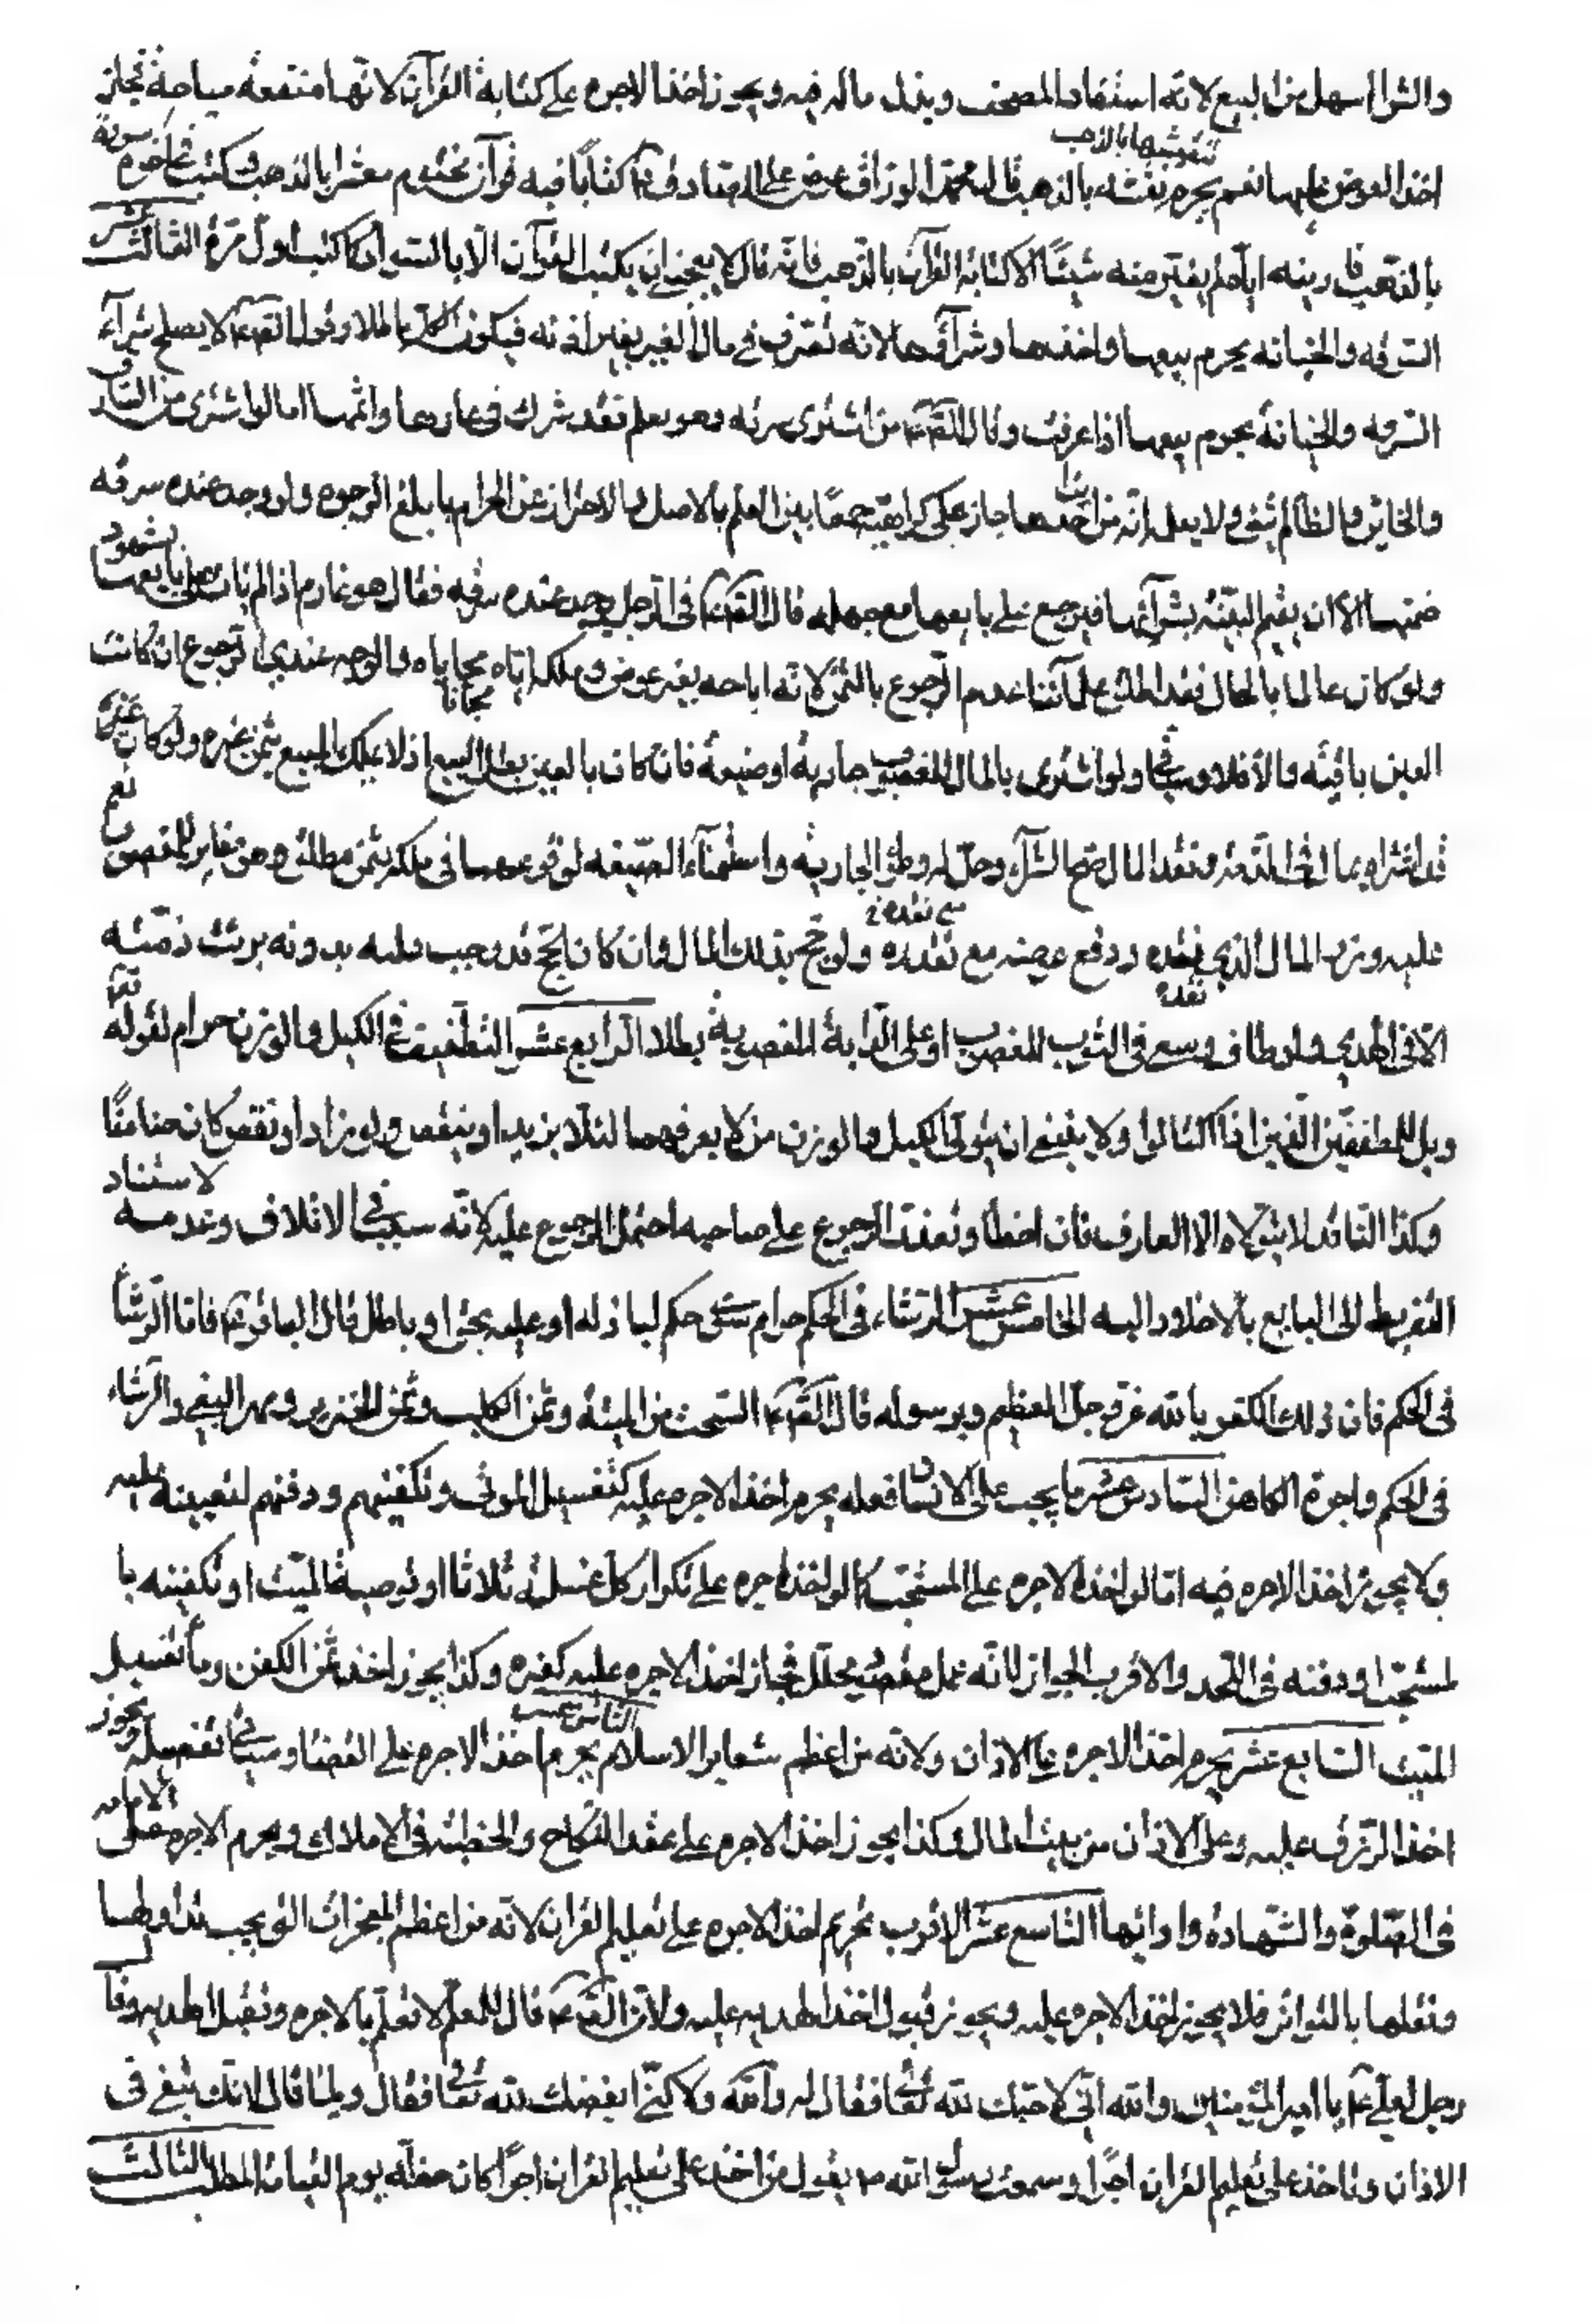 والشراء اسهل من البيع لانه استنقاذ المصحف وبذل ماله فيه ويجوز اخذ الاجرة على كتابة القرآن لانها منفعة مباحة فجاز
اخذ العوض عليها نعم يحرم نقشه بالذهب قال محمد الوراق عرض على الصادق ع كتابا فيه قرآن مختم معشر بالذهب وكتب في آخره سورة
تنقيشها بالذهب
بالذهب فاريته اياه فلم يعب منه شيئا الا كتابة القرآن بالذهب فانه قال لا يعجبني ان يكتب القرآن الا بالسواد كما كتب اول مرة الثالث عشر
السرقة والخيانة يحرم بيعها واخذها وشراؤها لانه تصرف في مال الغير بغير اذنه فيكون باطلا وقول الصادق ع لا يصلح شراء
السرقة والخيانة يحرم بيعها اذا عرفت وقال الصادق ع من اشترى سرقة وهو يعلم فقد شرك في عارها واثمها اما لو اشترى من السارق
والخاين والظالم شيئا ولا يعلم انه من احدها جاز على كراهية جمعا بين العلم بالاصل والاحتراز عن الحرام بابلغ الوجوه ولو وجد عنده سرقة
ضمنها الا ان يقيم البينة بشرائها فيرجع على بايعها مع جهله قال الصادق ع في الرجل يوجد عنده سرقة فقال هو غارم اذا لم يات على بايعها بشهود
ولو كان عالما بالحال فقد اطلق علماؤنا عدم الرجوع بالثمن لانه اباحه بغير عوض وملكه اياه مجانا والوجه عندي الرجوع ان كانت
مجانا
العين باقية والا فلا وسياتي ولو اشترى بالمال المغصوب جارية او ضيعة فان كان بالعين بطل البيع اذ لا يملك المبيع بثمن غيره ولو كان
قد اشراه بمال في الذمة ونقد المال صح الشراء وحل له وطي الجارية واستنماء الضيعة لوقوعها في ملكه بثمن مطلق وهو مغاير للمغصوب نعم
عليه وزر المال الذي نقده ودفع عوضه مع نقده ولو حج بذلك المال فان كان الحج قد وجب عليه بدونه برئت ذمته
نقده
الا في الهدي ولو طاف وسعى في الثوب المغصوب او على الدابة المغصوبة بطلا الرابع عشر التطفيف في الكيل والوزن حرام لقوله تعالى
ويل للمطففين الذين اذا اكتالوا ولا ينبغي ان يتولى الكيل والوزن من لا يعرفهما لئلا يزيد او ينقص ولو زاد او نقص كان ضامنا
وكذا الناقد لا يتولاه الا العارف فان اخطأ وتعذر الرجوع على صاحبه احتمل الرجوع عليه لانه سبب في الاتلاف وعدمه لاستناد
التفريط الى البايع بالاخلاد اليه الخامس عشر الرشاء في الحكم حرام سواء حكم لباذله او عليه بحق او باطل قال الباقر ع فاما الرشا
في الحكم فان ذلك الكفر بالله عز وجل العظيم وبرسوله قال الصادق ع السحت من الميتة وثمن الكلب وثمن الخنزير ومهر البغي والرشاء
في الحكم واجرة الكاهن السادس عشر ما يجب على الانسان فعله يحرم اخذ الاجرة عليه كتغسيل الموتى وتكفينهم ودفنهم لتعيينه عليه
ولا يجوز اخذ الاجرة فيه اما لو اخذ الاجرة على المستحب كما لو اخذ اجره على تكرار كل غسلة ثلاثا او توضية الميت او تكفينه با
لمستحب او دفنه في اللحد والاقرب الجواز لانه عمل مقصود محلل فجاز اخذ الاجرة عليه كغيره وكذا يجوز اخذ ثمن الكفن وماء تغسيل
الميت السابع عشر يحرم اخذ الاجرة على الاذان ولانه من اعظم شعاير الاسلام يحرم اخذ الاجرة على القضا وسياتي تفصيله ويجوز
الثامن عشر
اخذ الرزق عليه وعلى الاذان من بيت المال وكذا يجوز اخذ الاجرة على عقد النكاح والخطبة في الاملاك ويحرم الاجرة على الامامة
في الصلوة والشهادة وادائها التاسع عشر الاقرب تحريم اخذ الاجرة على تعليم القران لانه من اعظم المعجزات التي يجب تداولها
ونقلها بالتواتر فلا يجوز اخذ الاجرة عليه ويجوز قبول اخذ الهدية عليه ولان الصادق ع قال المعلم لا تعلم بالاجرة وتقبل الهدية وقال
رجل لعلي ع يا امير المؤمنين والله اني لاحبك لله تعالى فقال له والله ولكني ابغضك لله تعالى فقال ولم قال لانك تبغي في
الاذان وتاخذ على تعليم القران اجرا وسمعت رسول الله ص يقول من اخذ على تعليم القران اجرا كان حظه يوم القيامة المطلب الثالث